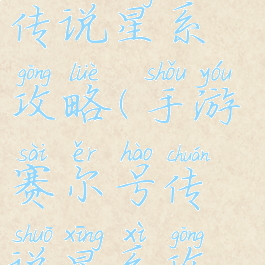 传说星系
gōng lüè shǒu yóu
攻略(手游
sài ěr hào chuán
赛尔号传
shuō xīng xì gōng
说星系攻